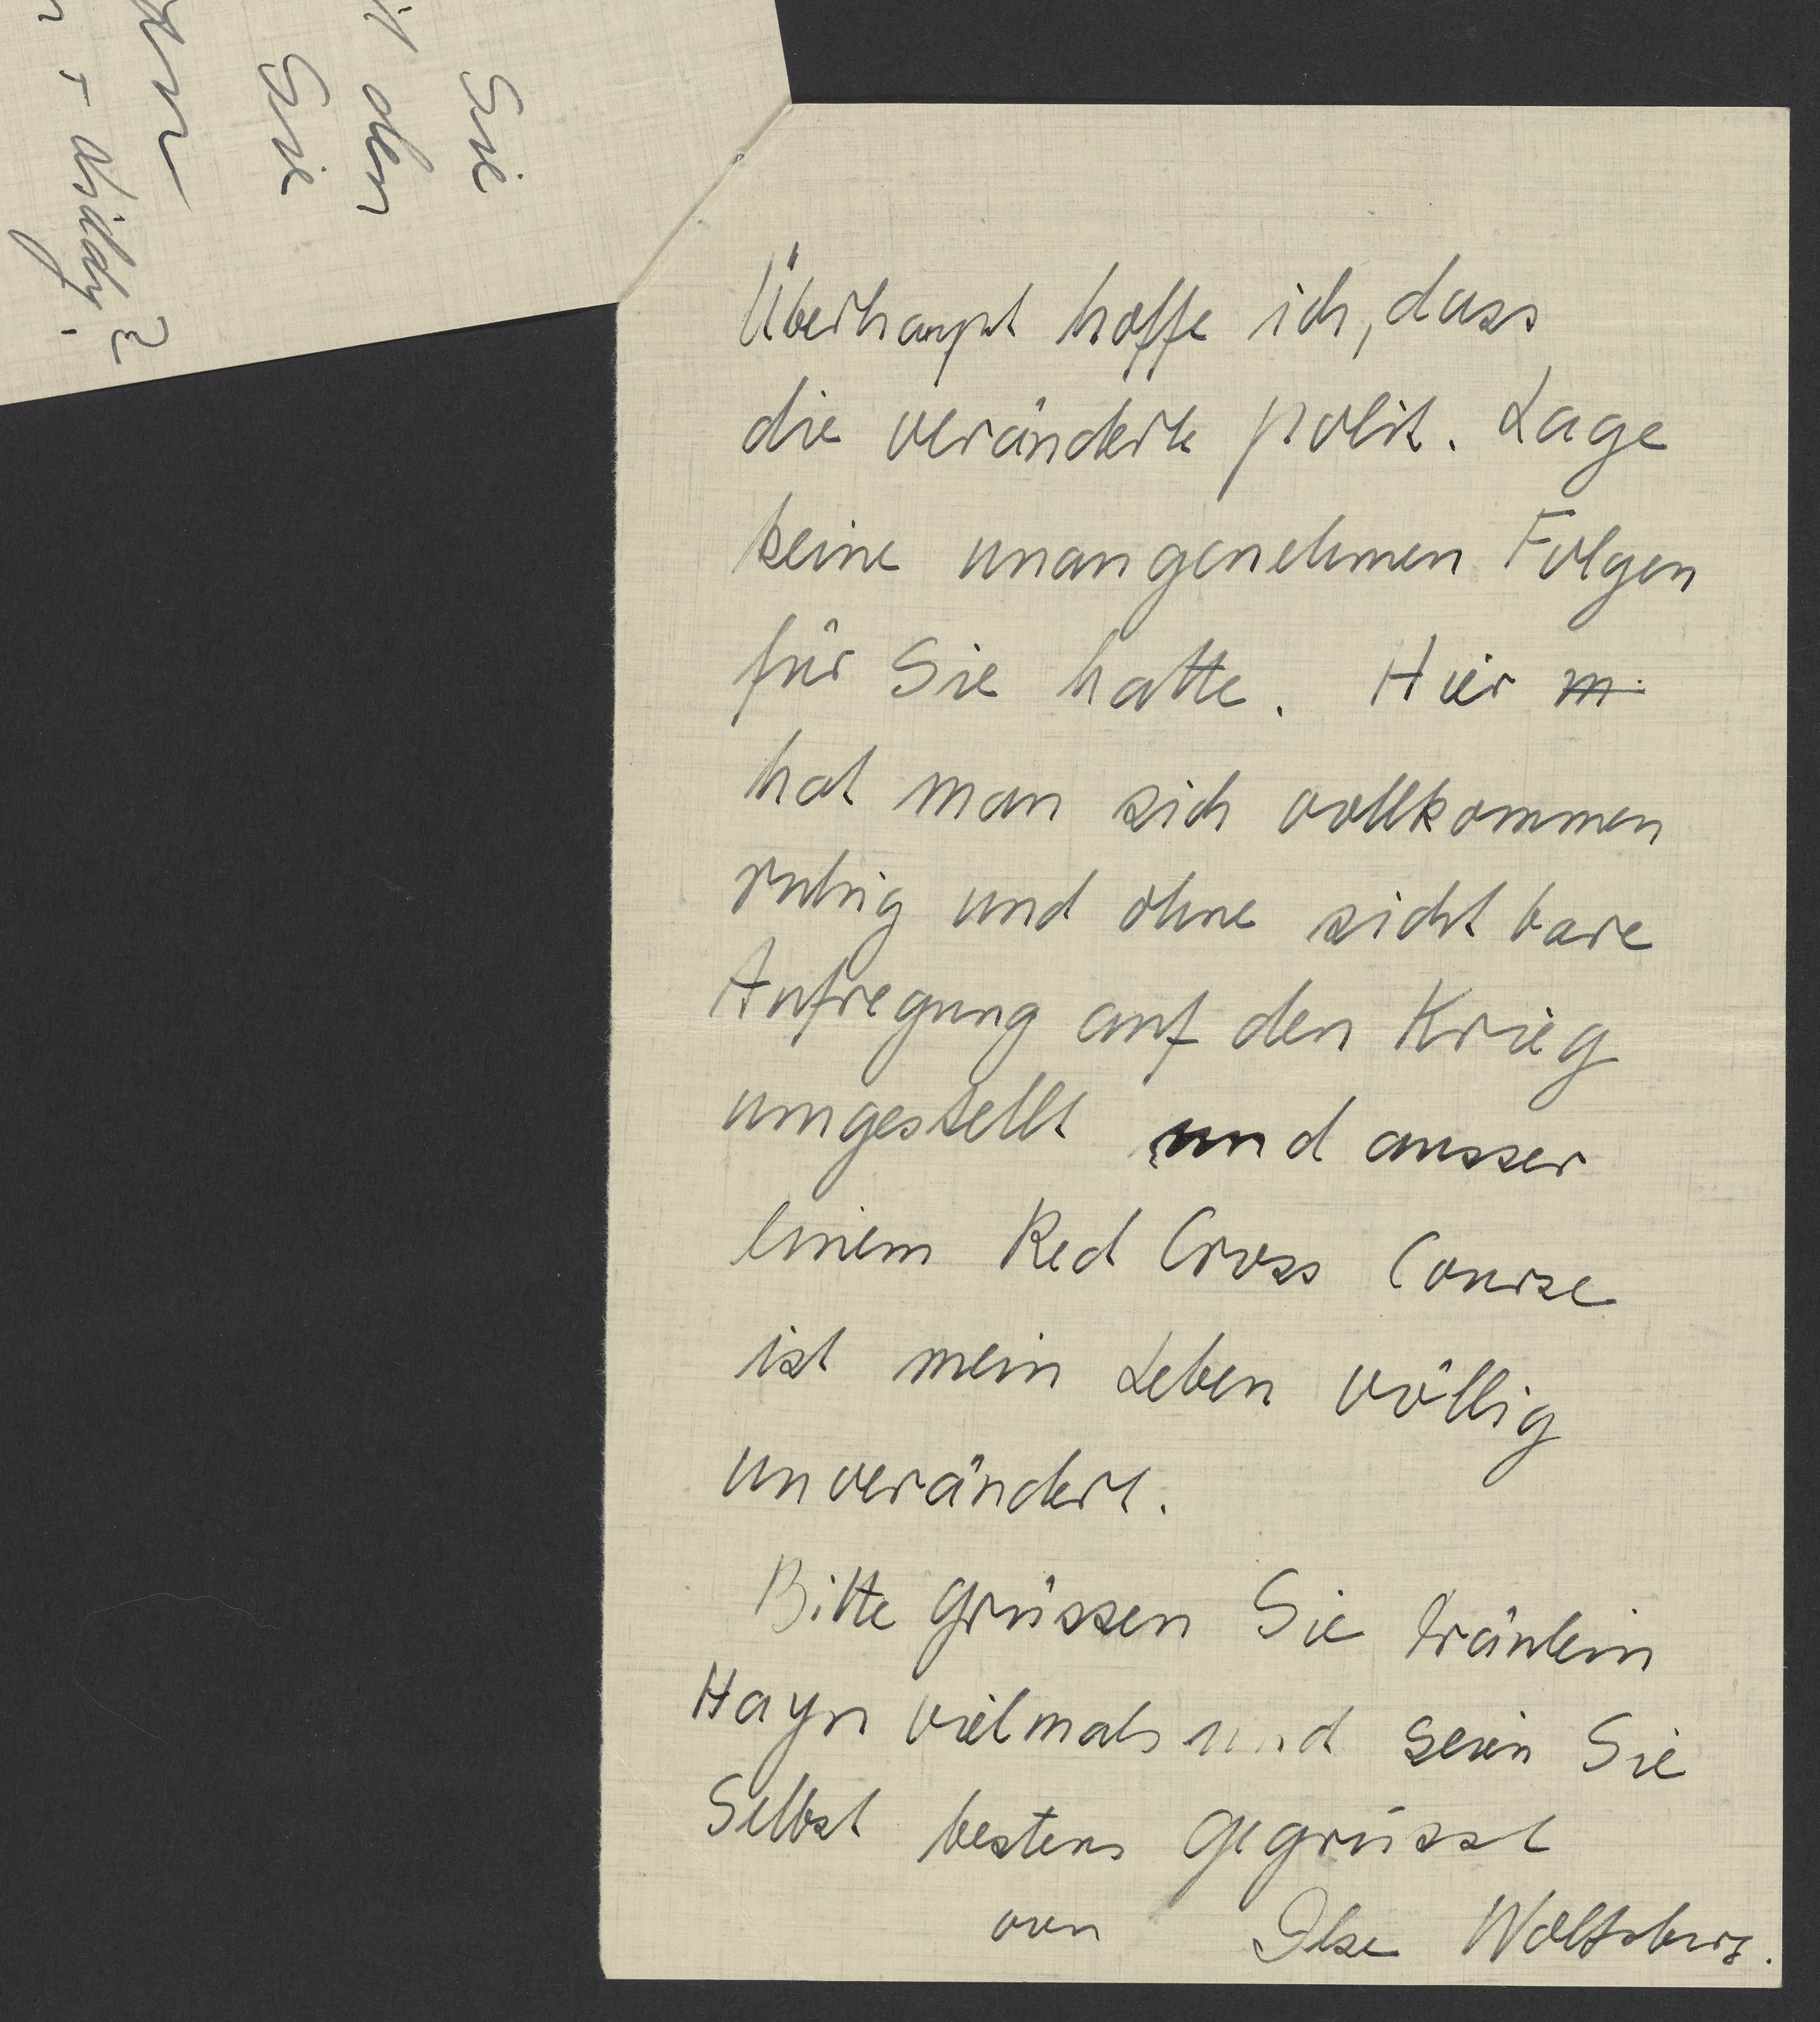 Sie
den
Sie
+
Überhaupt hoffe ich, dass
die veränderte polit. Lage
keine unangenehmen Folgen
für Sie hatte. Hier m
hat man sich vollkommen
ruhig und ohne sichtbare
Aufregung auf den Krieg
umgestellt und ausser
einem Red Cross Course
ist mein Leben völlig
unverändert.
Bitte grüssen Sie Fräulein
Hayn vielmals und seien Sie
Selbst bestens gegrüsst
von Ilse Wolfsberg.